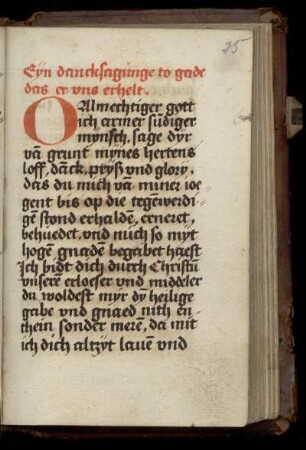 25
Eyn dancksagunge to gade
das er vns erhelt.
O Almechtiger gott
ich armer südiger
mynsch, sage dyr
vā grunt mynes hertens
loff, dāck, pryß vnd glory,
das du mich vā miner ioe
gent bis op die tegēwerdi
gē stond erhaldē, erneret,
behuedet, vnd mich so myt
hogē gnadē begabet haest
Ich bidt dich durch Christū
vnserē erloeser vnd middeler
du woldest myr dÿ heilige
gabe vnd gnaed nith en
thein sonder merē, da mit
ich dich altzyt lauē vnd